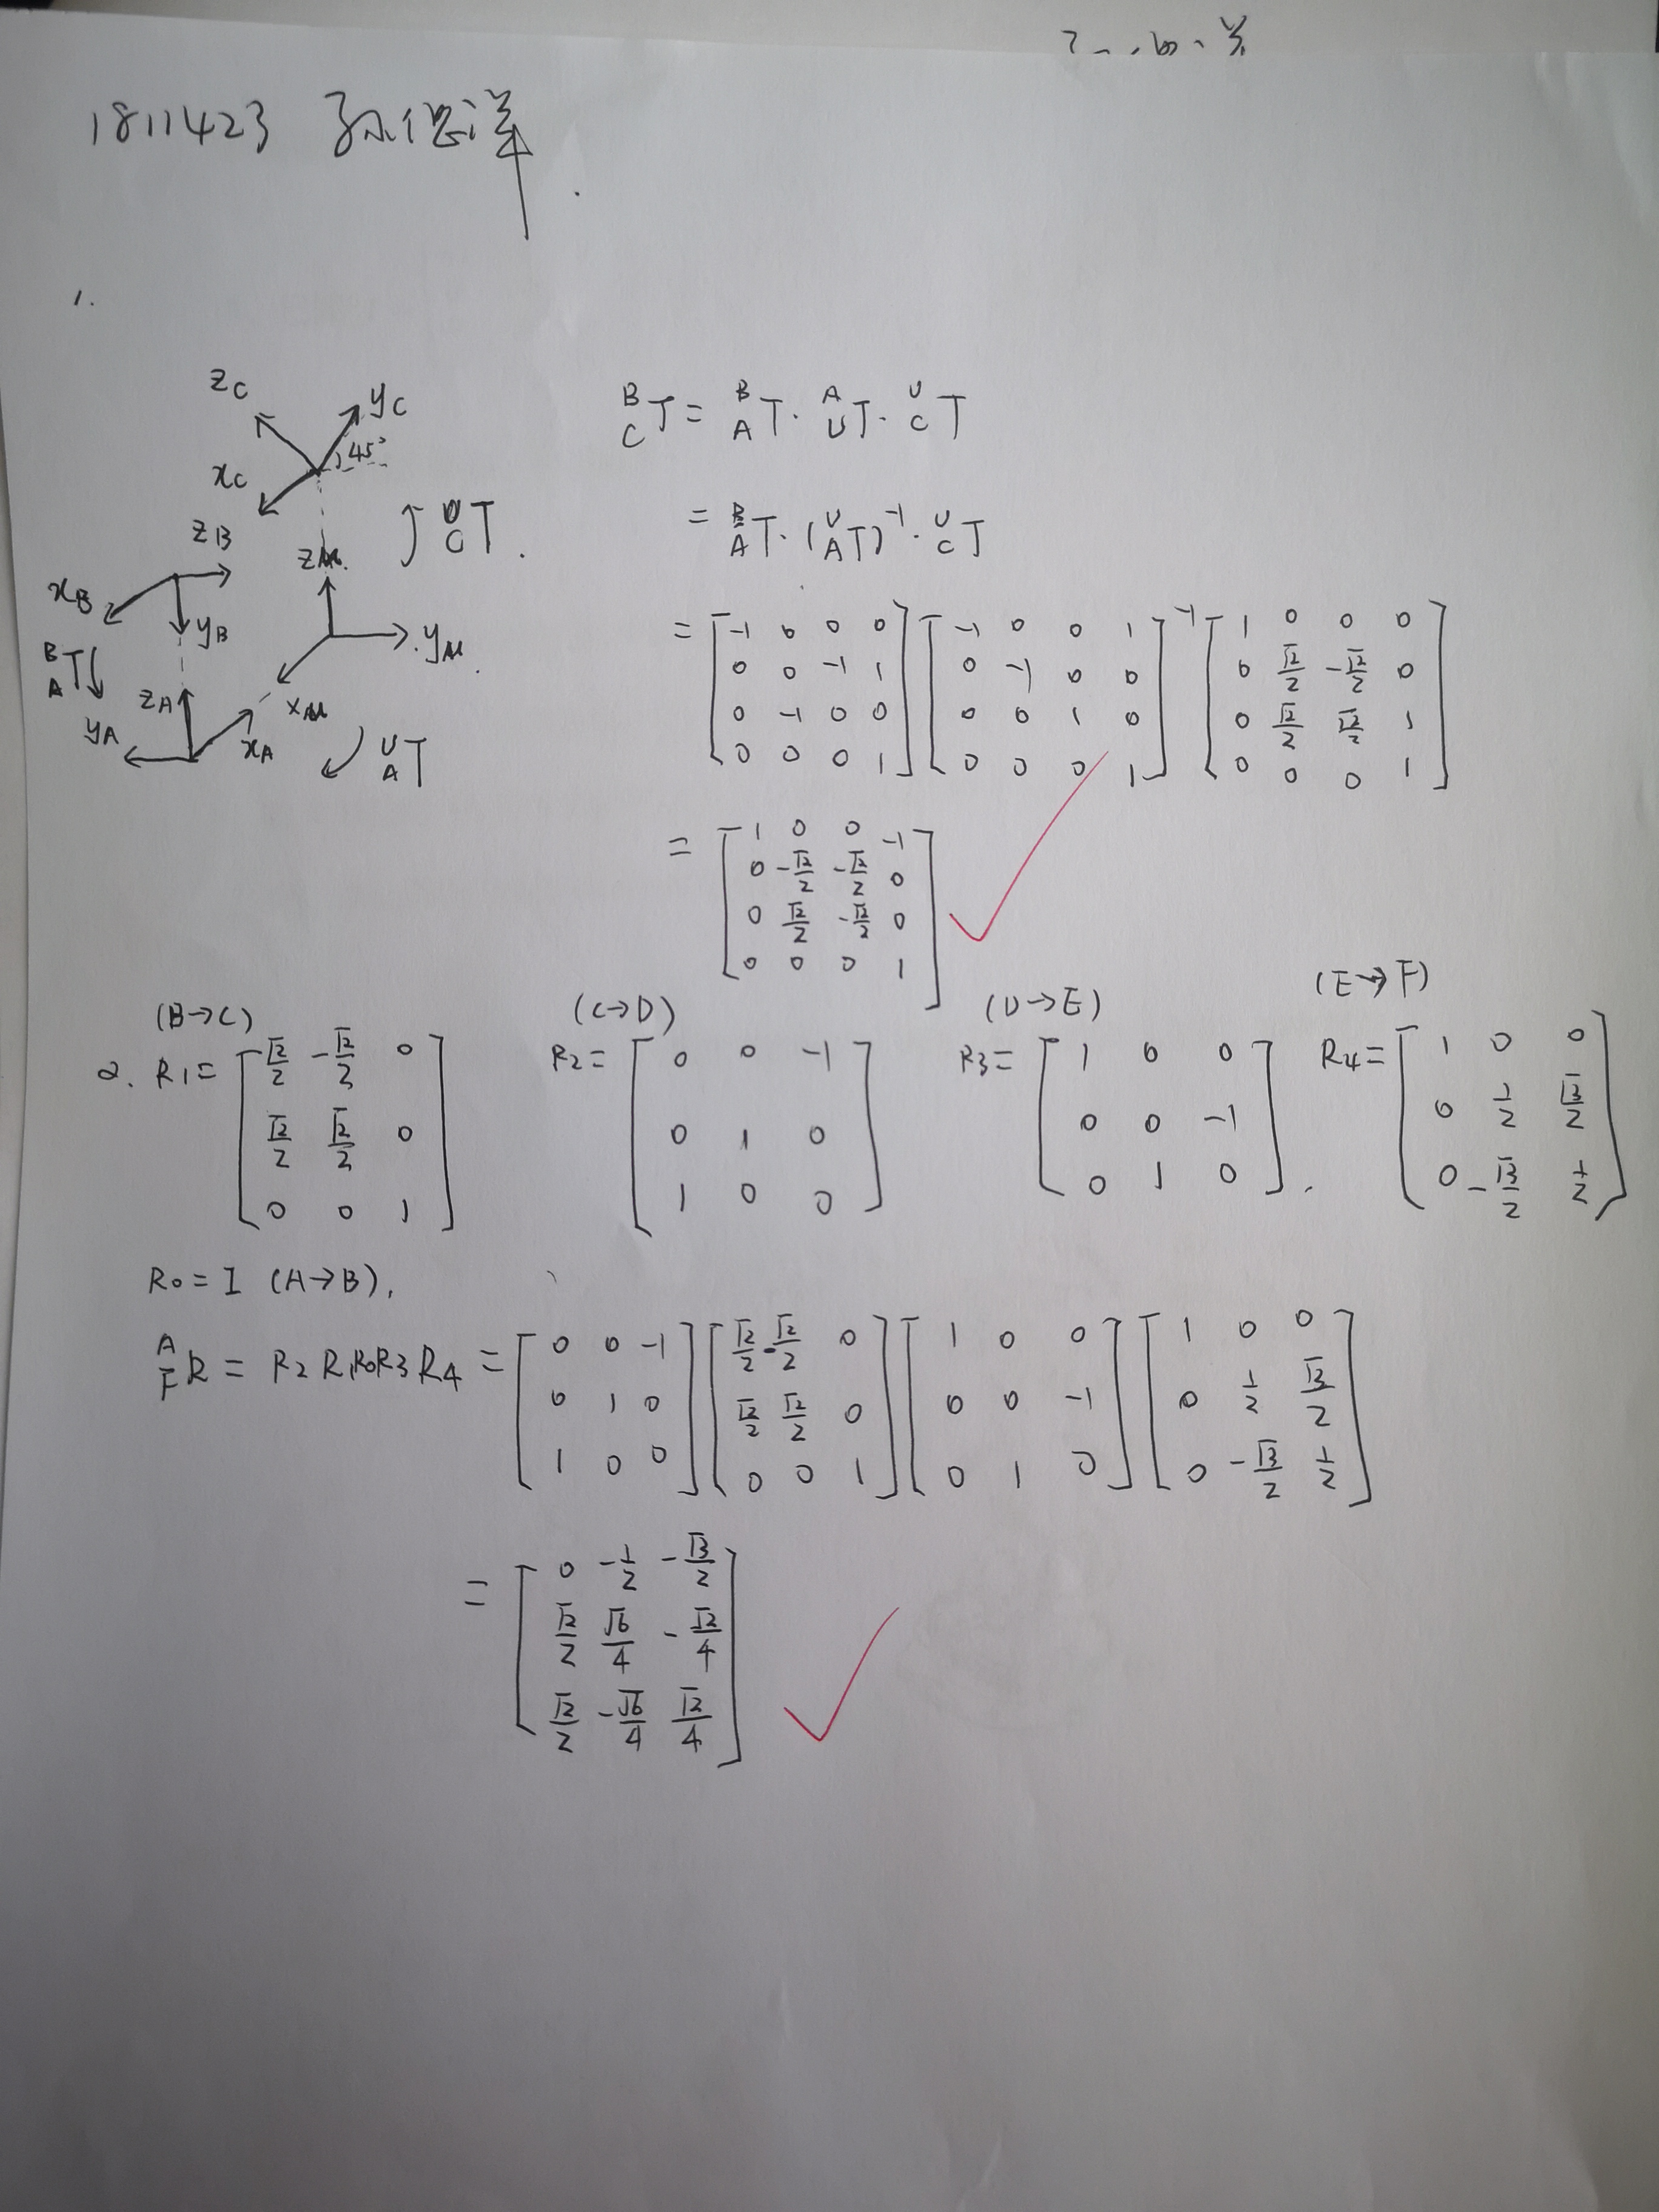 1811423 孙
1.
z_C
y_C
45°
x_C
z_B
^U_C T.
z_M.
x_B
y_B
y_M.
^B_A T
z_A
x_M
y_A
x_A
^U_A T
^B_C T = ^B_A T · ^A_U T · ^U_C T
= ^B_A T · (^U_A T)^-1 · ^U_C T
= [-1 0 0 0; 0 0 -1 1; 0 -1 0 0; 0 0 0 1] [-1 0 0 1; 0 -1 0 0; 0 0 1 0; 0 0 0 1]^-1 [1 0 0 0; 0 √2/2 -√2/2 0; 0 √2/2 √2/2 1; 0 0 0 1]
= [1 0 0 -1; 0 -√2/2 -√2/2 0; 0 √2/2 -√2/2 0; 0 0 0 1]
(B→C) (C→D) (D→E) (E→F)
2. R1 = [√2/2 -√2/2 0; √2/2 √2/2 0; 0 0 1] R2 = [0 0 -1; 0 1 0; 1 0 0] R3 = [1 0 0; 0 0 -1; 0 1 0]. R4 = [1 0 0; 0 1/2 √3/2; 0 -√3/2 1/2]
R0 = I (A→B),
^A_F R = R2 R1 R0 R3 R4 = [0 0 -1; 0 1 0; 1 0 0] [√2/2 -√2/2 0; √2/2 √2/2 0; 0 0 1] [1 0 0; 0 0 -1; 0 1 0] [1 0 0; 0 1/2 √3/2; 0 -√3/2 1/2]
= [0 -1/2 -√3/2; √2/2 √6/4 -√2/4; √2/2 -√6/4 √2/4]